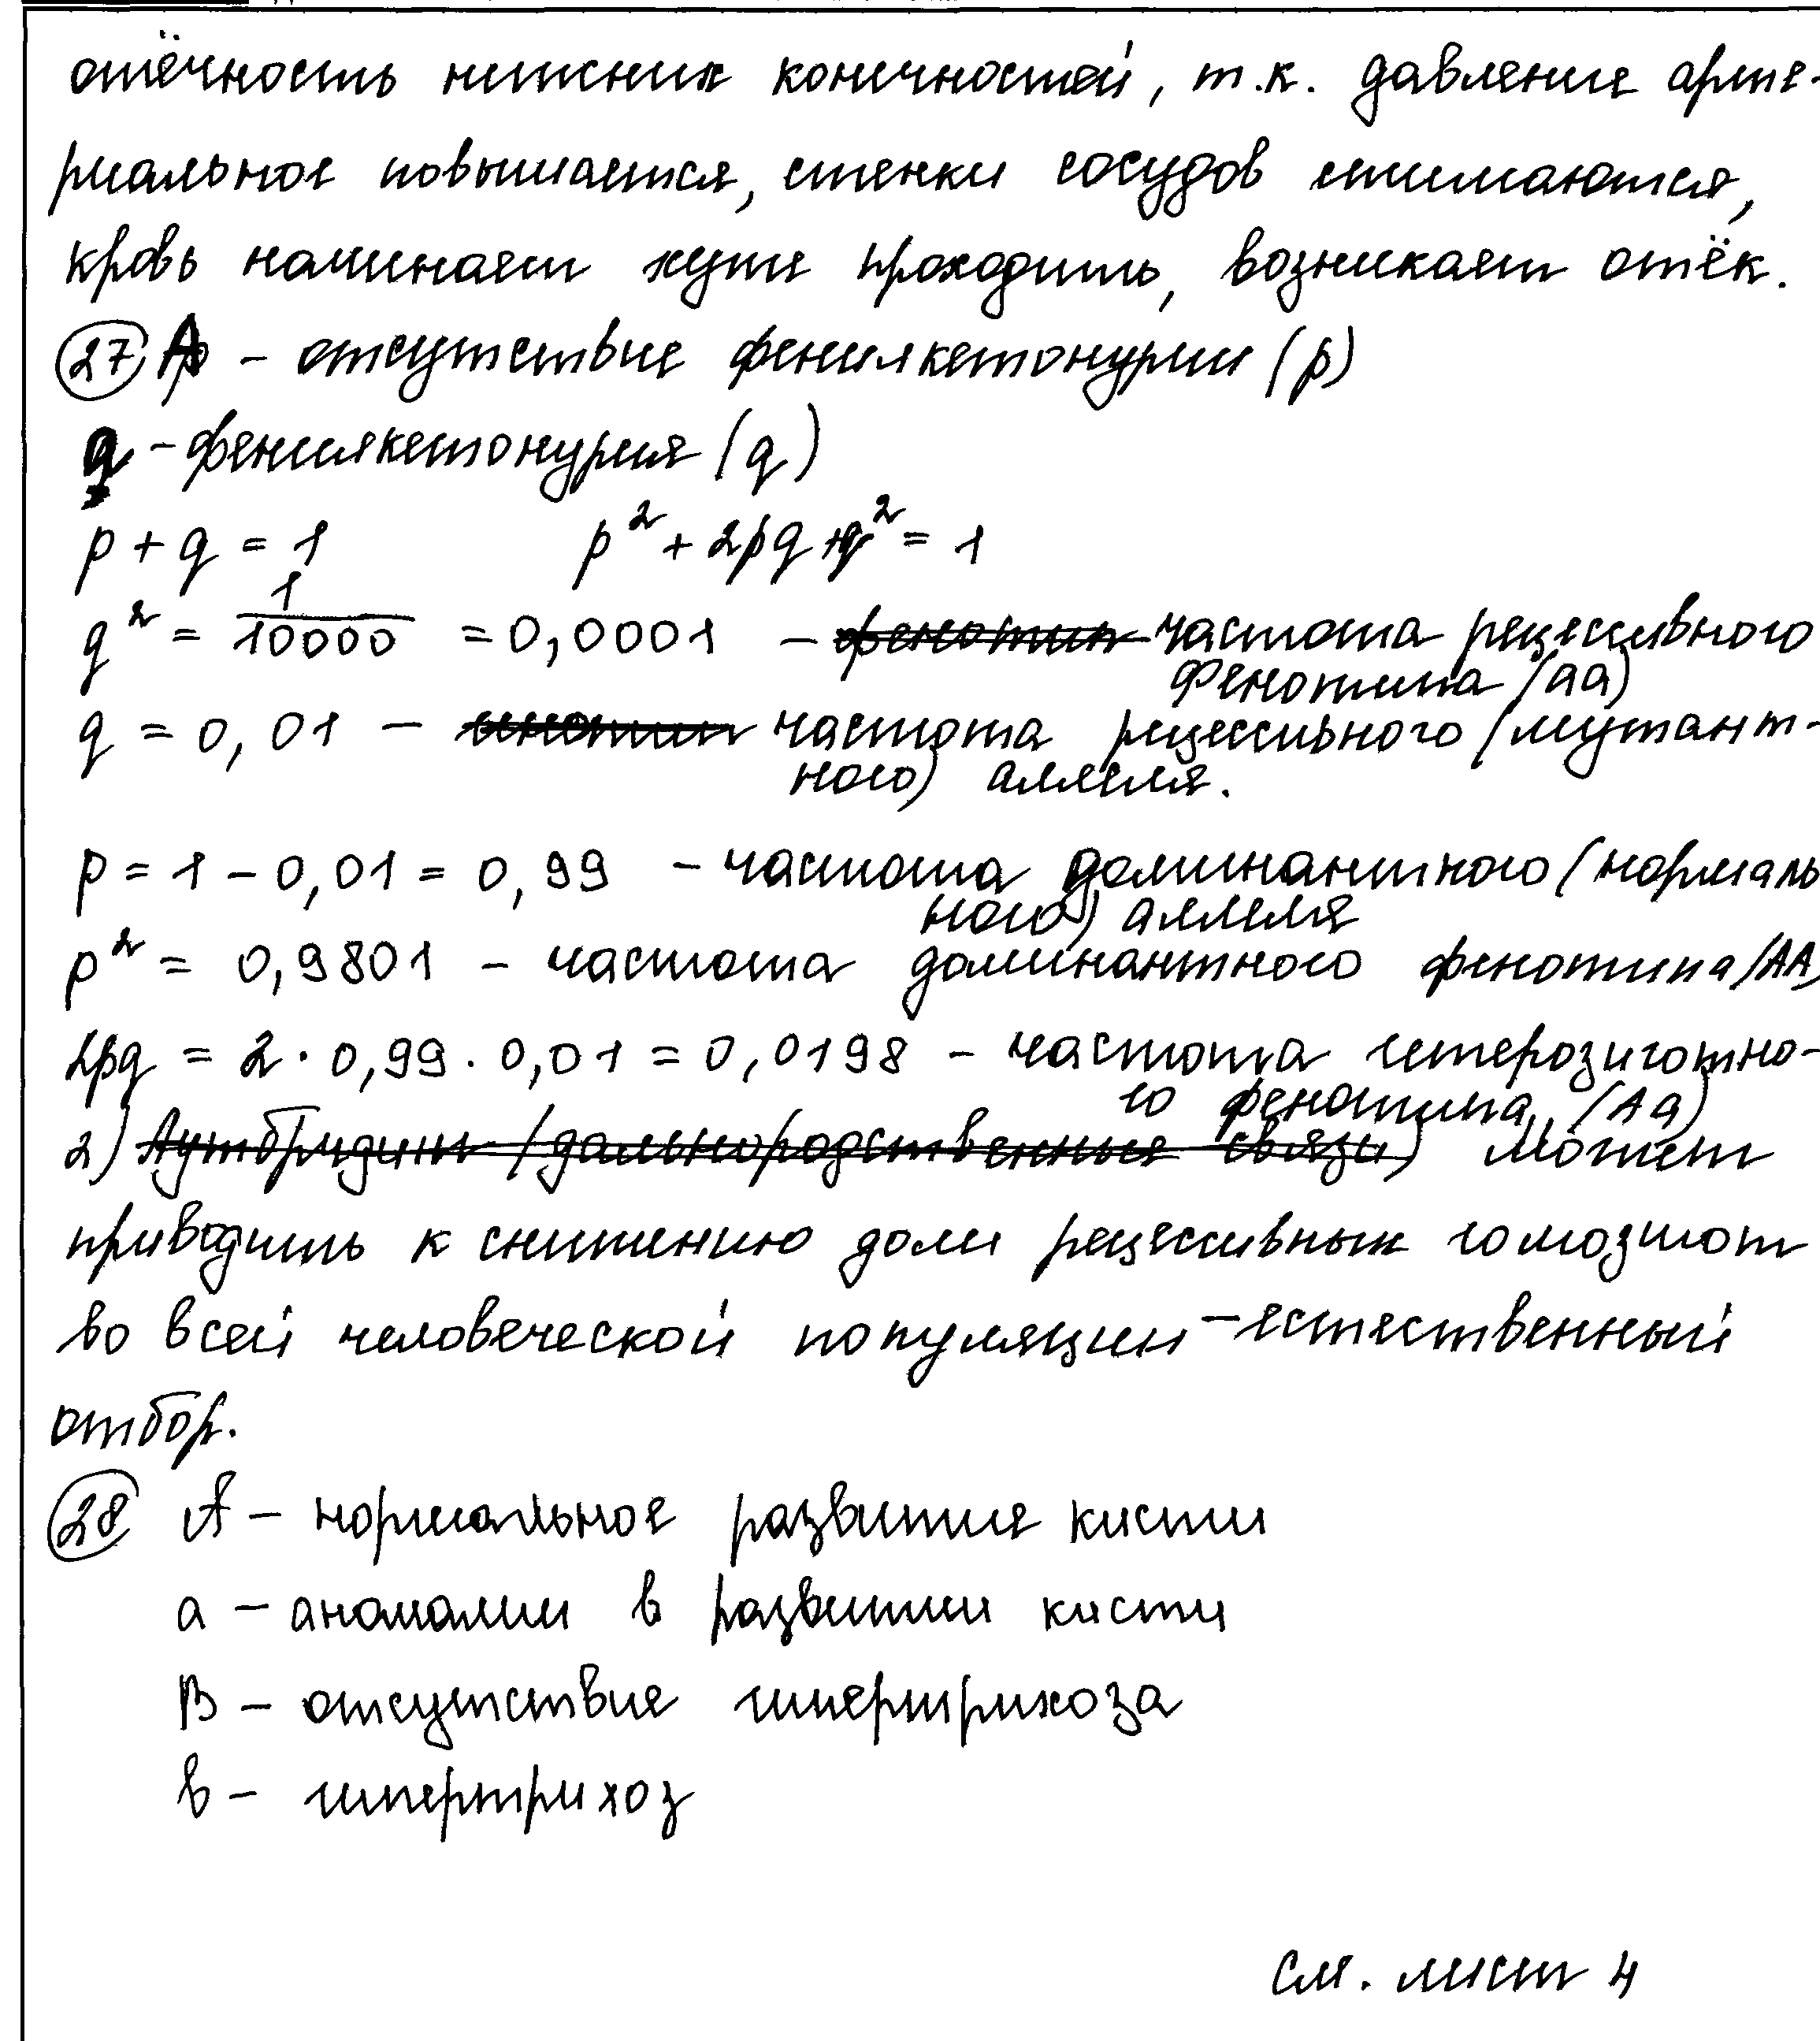 отёчность нижних конечностей, т.к. давление арте-
риальное повышается, стенки сосудов сжимаются,
кровь начинает хуже проходить, возникает отёк.
27 A - отсутствие фенилкетонурии (p)
a - фенилкетонурия (q)
p + q = 1 p² + 2pq + q² = 1
q² = 1/10000 = 0,0001 - фенотип частота рецессивного
фенотипа (aa)
q = 0,01 - частота рецессивного (мутант-
ного) аллеля.
p = 1 - 0,01 = 0,99 - частота доминантного (нормаль
ного) аллеля
p² = 0,9801 - частота доминантного фенотипа (AA)
2pq = 2 · 0,99 · 0,01 = 0,0198 - частота гетерозиготно-
го фенотипа (Aa)
2) Аутбридинг (дальнородственные связи) может
приводить к снижению доли рецессивных гомозигот
во всей человеческой популяции - естественный
отбор.
28 A - нормальное развитие кисти
a - аномалии в развитии кисти
B - отсутствие гипертрихоза
b - гипертрихоз
см. лист 4